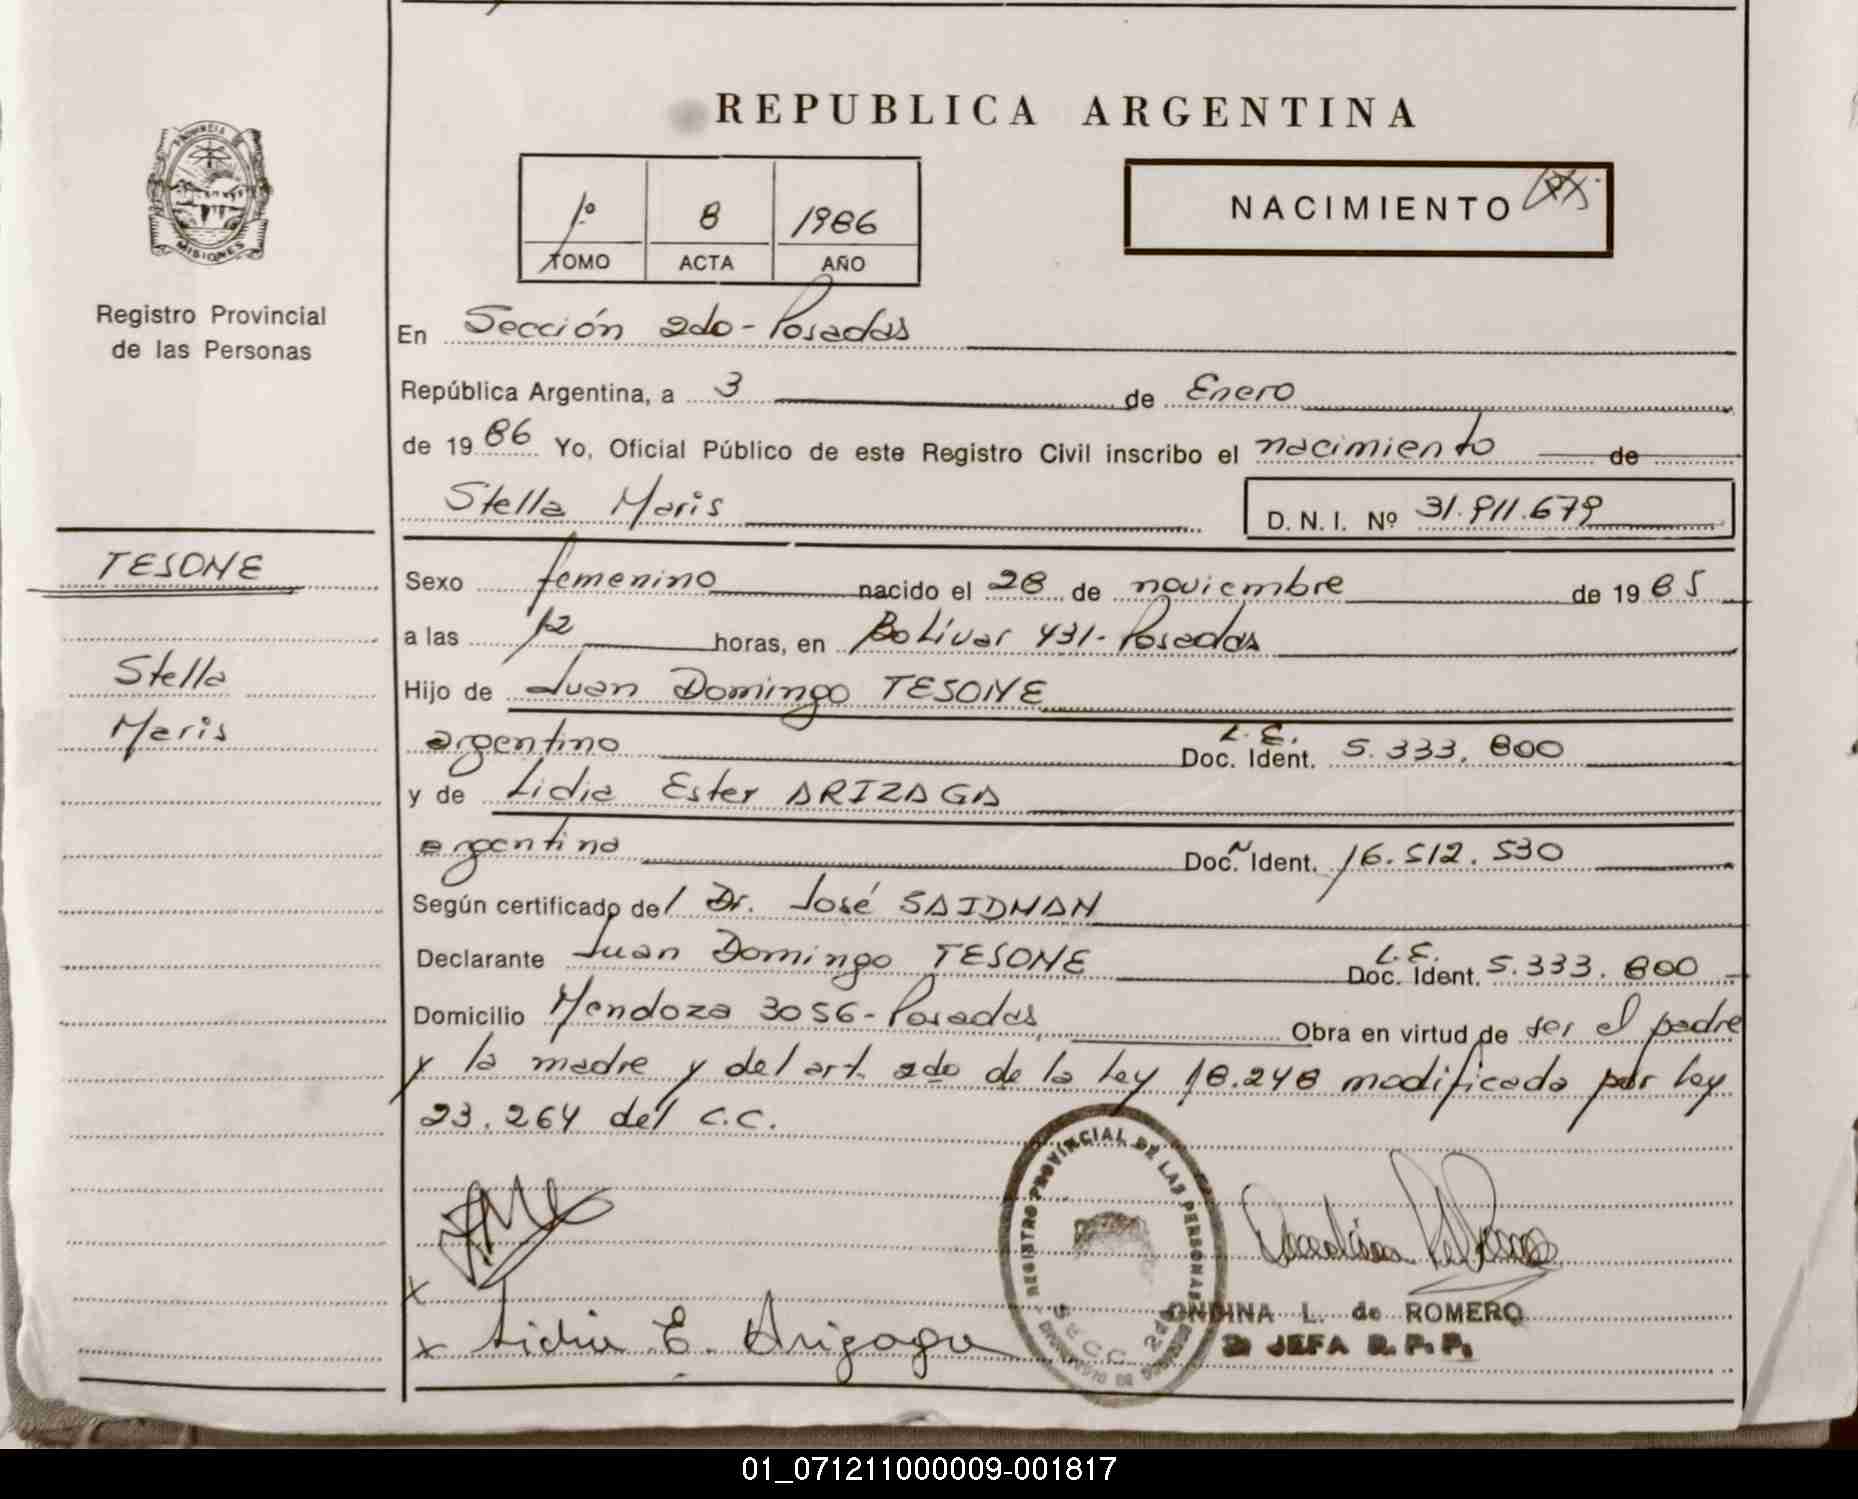 REPUBLICA ARGENTINA
PROVINCIA DE
MISIONES
Registro Provincial
de las Personas
1º 8 1986
TOMO ACTA AÑO
NACIMIENTO
En Sección 2do - Posadas
República Argentina, a 3 de Enero
de 1986 Yo, Oficial Público de este Registro Civil inscribo el nacimiento de
Stella Maris D. N. I. Nº 31.911.679
TESONE
Stella
Maris
Sexo femenino nacido el 28 de noviembre de 1985
a las 12 horas, en Bolívar 431 - Posadas
Hijo de Juan Domingo TESONE
argentino Doc. Ident. L.E. 5.333.800
y de Lidia Ester ARIZAGA
argentina Doc. Ident. 16.512.530
Según certificado del Dr. José SAIDMAN
Declarante Juan Domingo TESONE Doc. Ident. L.E. 5.333.800
Domicilio Mendoza 3056 - Posadas Obra en virtud de ser el padre
y la madre y del art. 2do de la ley 18.248 modificado por ley
23.264 del C.C.
REGISTRO PROVINCIAL DE LAS PERSONAS
SECC. 2da
x
x Lidia E. Arizaga
ONDINA L. de ROMERO
JEFA R. P. P.
01_071211000009-001817